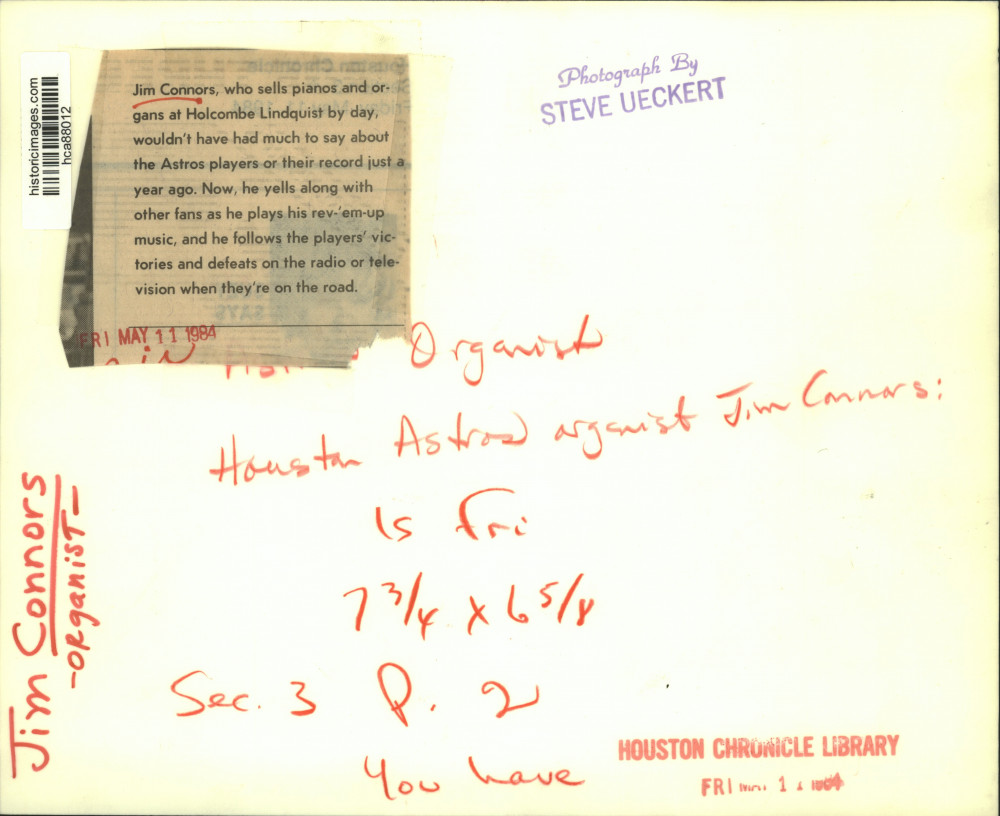 historicimages.com
hca88012
Jim Connors, who sells pianos and or-
gans at Holcombe Lindquist by day,
wouldn't have had much to say about
the Astros players or their record just a
year ago. Now, he yells along with
other fans as he plays his rev-'em-up
music, and he follows the players' vic-
tories and defeats on the radio or tele-
vision when they're on the road.
FRI MAY 11 1984
Photograph By
STEVE UECKERT
Organist
Houston Astros organist Jim Connors:
Is Fri
7 3/4 x 6 5/8
Sec. 3 P. 2
You have
Jim Connors
-ORganist-
HOUSTON CHRONICLE LIBRARY
FRI